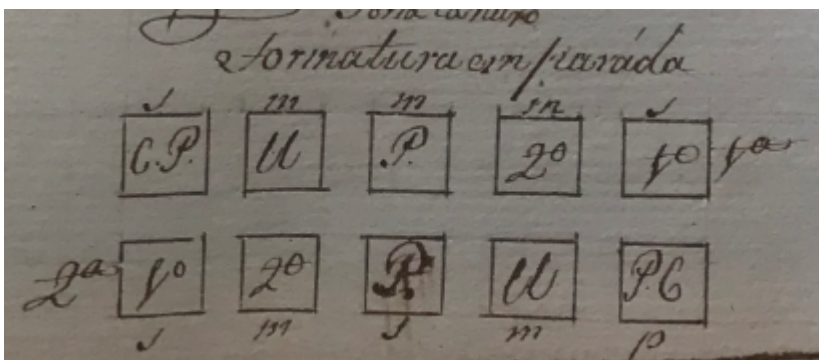 Formatura em paráda
s m m m s
C.P. U P. 2º 1º 1ª
2ª 1º 2º P. U P.C
s m s m p